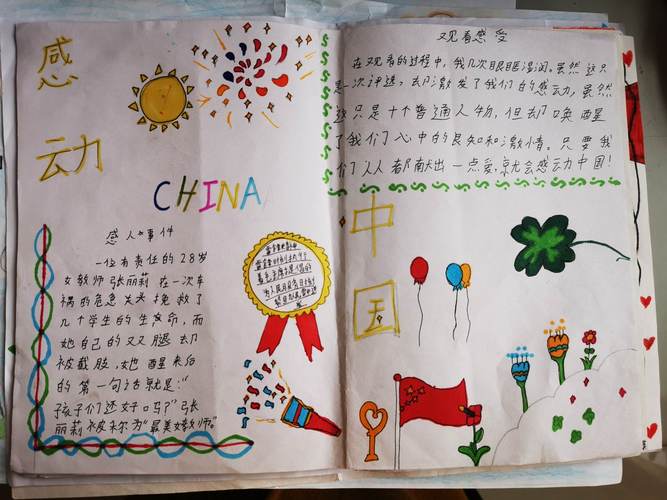 感
动
CHINA
感人心事件
一位有责任的28岁
女教师张丽莉在一次车
祸的危急关头挽救了
几个学生的生命,而
她自己的双腿却
被截肢,她醒来后
的第一句话就是:“
孩子们还好吗?”张
丽莉被称为“最美女教师。”
观看感受
在观看的过程中,我几次眼眶湿润,虽然这只
是一次评选,却激发了我们的感动,虽然
这只是十个普通人物,但却唤醒
了我们心中的良知和激情。只要我
们人人都献出一点爱,就会感动中国!
中
国